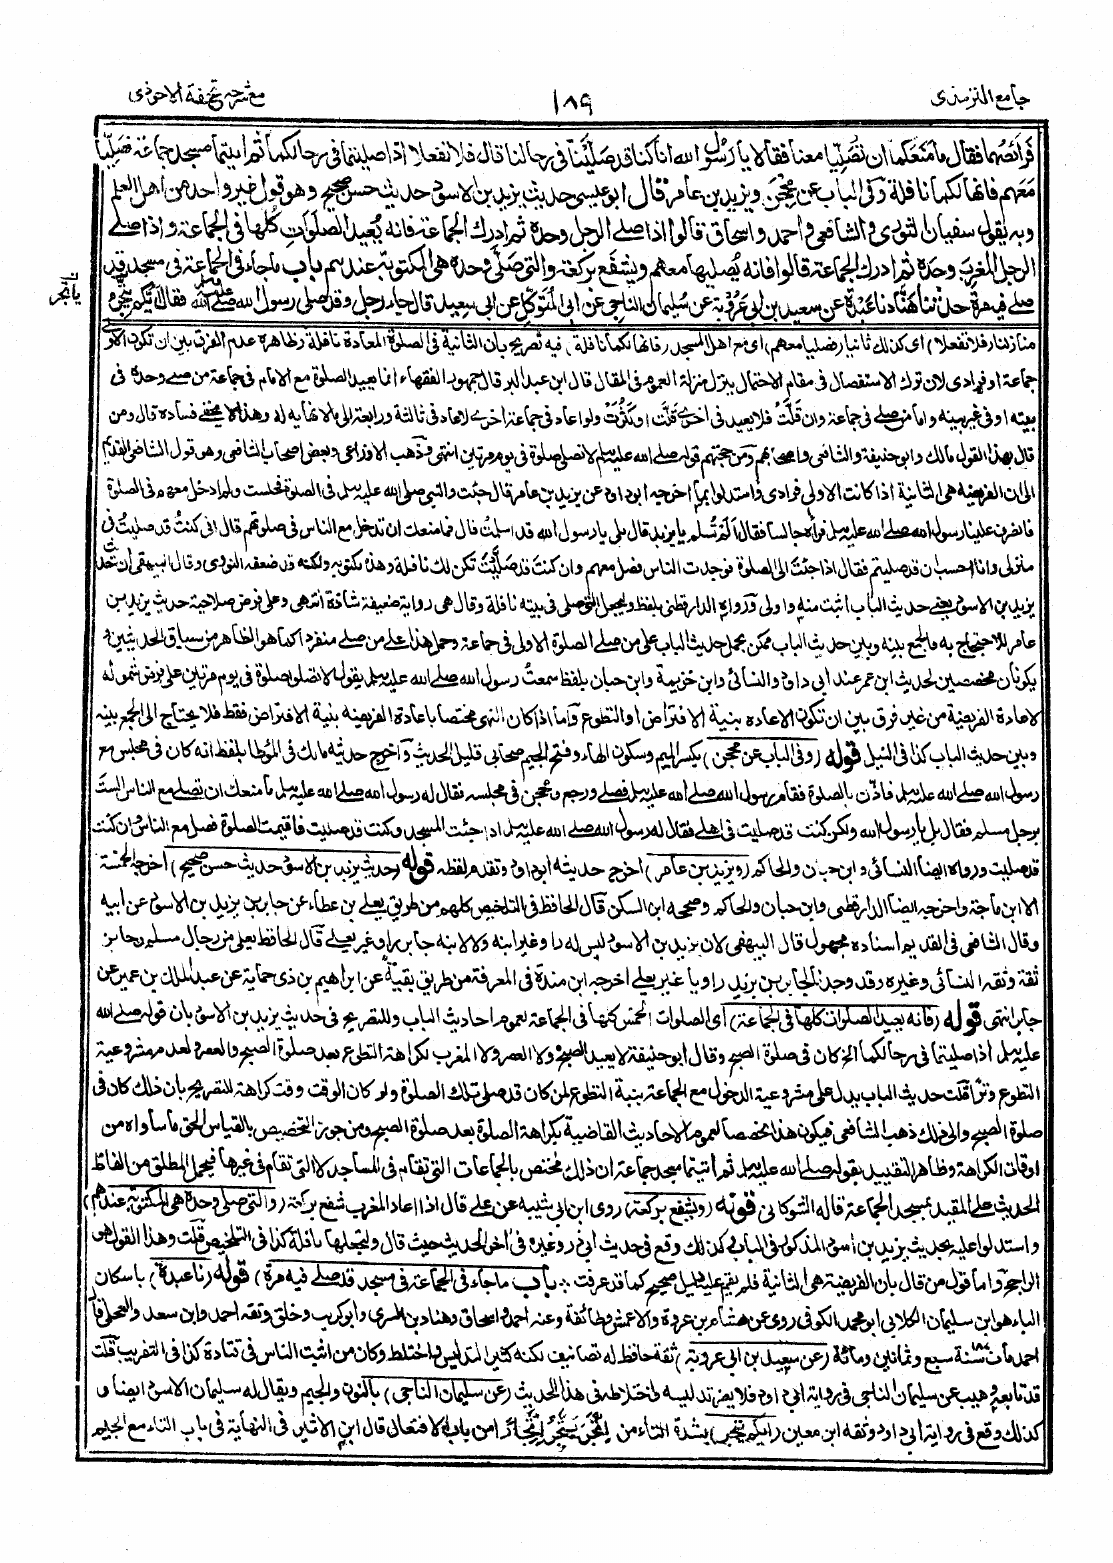 جامع الترمذي
١٨٩
مع شرحه تحفة الاحوذي
فرائصهما فقال ما منعكما ان تصليا معنا فقالا يا رسول الله انا كنا قد صلينا في رحالنا قال فلا تفعلا اذا صليتما في رحالكما ثم اتيتما مسجد جماعة فصليا
معهم فانها لكما نافلة وفي الباب عن محجن ويزيد بن عامر قال ابو عيسى حديث يزيد بن الاسود حديث حسن صحيح وهو قول غير واحد من اهل العلم
وبه يقول سفيان الثوري والشافعي واحمد واسحاق قالوا اذا صلى الرجل وحده ثم ادرك الجماعة فانه يعيد الصلوات كلها في الجماعة واذا صلى
الرجل المغرب وحده ثم ادرك الجماعة قالوا فانه يصليها معهم ويشفع بركعة والتي صلى وحده هي المكتوبة عندهم باب ما جاء في الجماعة في مسجد قد
صلي فيه مرة حدثنا هناد نا عبدة عن سعيد بن ابي عروبة عن سليمان الناجي عن ابي المتوكل عن ابي سعيد قال جاء رجل وقد صلى رسول الله صلى الله عليه وسلم فقال ايكم يتجر
منازلنا (فلا تفعلا) اى كذلك ثانيا (فصليا معهم) اى مع اهل المسجد (فانها لكما نافلة) فيه تصريح بان الثانية في الصلوة المعادة نافلة وظاهره عدم الفرق بين ان تكون الاولى
جماعة او فرادى لان ترك الاستفصال في مقام الاحتمال ينزل منزلة العموم في المقال قال ابن عبد البر قال جمهور الفقهاء انما يعيد الصلوة مع الامام في جماعة من صلى وحده في
بيته او في غير بيته واما من صلى في جماعة وان قلت فلا يعيد في اخرى قلت او كثرت ولو اعاد في جماعة اخرى لاعاد في ثالثة ورابعة الى ما لا نهاية له وهذا لا يخفى فساده قال ومن
قال بهذا القول مالك وابو حنيفة والشافعي واصحابهم ومن حجتهم قوله صلى الله عليه وسلم لا تصلى صلوة في يوم مرتين انتهى وذهب الاوزاعي وبعض اصحاب الشافعي وهو قول الشافعي القديم
الى ان الفريضة هي الثانية اذا كانت الاولى فرادى واستدلوا بما اخرجه ابو داود عن يزيد بن عامر قال جئت والنبي صلى الله عليه وسلم في الصلوة فجلست ولم ادخل معهم في الصلوة
فانصرف علينا رسول الله صلى الله عليه وسلم فرأه جالسا فقال الم تسلم يا يزيد قال بلى يا رسول الله قد اسلمت قال فما منعك ان تدخل مع الناس في صلوتهم قال اني كنت قد صليت في
منزلي وانا احسب ان قد صليتم فقال اذا جئت الى الصلوة فوجدت الناس فصل معهم وان كنت قد صليت تكن لك نافلة وهذه مكتوبه ولكنه قد ضعفه النووي وقال البيهقي ان حديث
يزيد بن الاسود يعني حديث الباب اثبت منه واولى ورواه الدارقطني بلفظ وليجعل التي صلى في بيته نافلة وقال هي رواية ضعيفة شاذة انتهى وعلى فرض صلاحية حديث يزيد بن
عامر للاحتجاج به فالجمع بينه وبين حديث الباب ممكن بحمل حديث الباب على من صلى الصلوة الاولى في جماعة وحمل هذا على من صلى منفردا كما هو الظاهر من سياق الحديثين و
يكونان مخصصين لحديث ابن عمر عند ابي داود والنسائي وابن خزيمة وابن حبان بلفظ سمعت رسول الله صلى الله عليه وسلم يقول لا تصلوا صلوة في يوم مرتين على فرض شموله
لاعادة الفريضة من غير فرق بين ان تكون الاعادة بنية الافتراض او التطوع واما اذا كان النهى مختصا باعادة الفريضة بنية الافتراض فقط فلا يحتاج الى الجمع بينه
وبين حديث الباب كذا في النيل قوله (وفي الباب عن محجن) بكسر الميم وسكون الحاء وفتح الجيم صحابي قليل الحديث واخرج حديثه مالك في المؤطا بلفظ انه كان في مجلس مع
رسول الله صلى الله عليه وسلم فاذن بالصلوة فقام رسول الله صلى الله عليه وسلم فصلى ورجع ومحجن في مجلسه فقال له رسول الله صلى الله عليه وسلم ما منعك ان تصلي مع الناس الست
برجل مسلم فقال بلى يا رسول الله ولكن كنت قد صليت في اهلي فقال له رسول الله صلى الله عليه وسلم اذا جئت المسجد وكنت قد صليت فاقيمت الصلوة فصل مع الناس وان كنت
قد صليت ورواه ايضا النسائي وابن حبان والحاكم (ويزيد بن عامر) اخرج حديثه ابو داود وتقدم لفظه قوله (حديث يزيد بن الاسود حديث حسن صحيح) اخرجه الخمسة
الا ابن ماجة واخرجه ايضا الدارقطني وابن حبان والحاكم وصححه ابن السكن قال الحافظ في التلخيص كلهم من طريق يعلى بن عطاء عن جابر بن يزيد بن الاسود عن ابيه
وقال الشافعي في القديم اسناده مجهول قال البيهقي لان يزيد بن الاسود ليس له راو غير ابنه ولا لابنه جابر راو غير يعلى قال الحافظ يعلى من رجال مسلم وجابر
ثقة وثقه النسائي وغيره وقد وجدنا لجابر بن يزيد راويا غير يعلى اخرجه ابن مندة في المعرفة من طريق بقية عن ابراهيم بن ذي حماية عن عبد الملك بن عمير عن
جابر انتهى قوله (فانه يعيد الصلوات كلها في الجماعة) اى الصلوات الخمس كلها في الجماعة لعموم احاديث الباب وللتصريح في حديث يزيد بن الاسود بان قوله صلى الله
عليه وسلم اذا صليتما في رحالكما الخ كان في صلوة الصبح وقال ابو حنيفة لا يعيد الصبح ولا العصر ولا المغرب لكراهة التطوع بعد صلوة الصبح والعصر ولعدم مشروعية
التطوع وترا قلت حديث الباب يدل على مشروعية الدخول مع الجماعة بنية التطوع لمن كان قد صلى تلك الصلوة ولو كان الوقت وقت كراهة للتصريح بان ذلك كان في
صلوة الصبح والى ذلك ذهب الشافعي فيكون هذا مخصصا لعموم الاحاديث القاضية بكراهة الصلوة بعد صلوة الصبح ومن جوز التخصيص بالقياس الحق ما ساواه من
اوقات الكراهة وظاهر التقييد بقوله صلى الله عليه وسلم ثم اتيتما مسجد جماعة ان ذلك مختص بالجماعات التي تقام في المساجد لا التي تقام في غيرها فيحمل المطلق من الفاظ
الحديث على المقيد بمسجد الجماعة قاله الشوكاني قوله (ويشفع بركعة) روى ابن ابي شيبة عن علي قال اذا اعاد المغرب شفع بركعة (والتي صلى وحده هي المكتوبة عندهم)
واستدلوا عليه بحديث يزيد بن اسود المذكور في الباب كذلك وقع في حديث ابي ذر وغيره في اخر الحديث حيث قال ولتجعلها نافلة كذا في التلخيص قلت وهذا القول هو
الراجح واما قول من قال بان الفريضة هي الثانية فلم يقم عليه دليل صحيح كما قد عرفت. باب ما جاء في الجماعة في مسجد قد صلي فيه مرة) قوله (نا عبدة) باسكان
الباء هو ابن سليمان الكلابي ابو محمد الكوفي روى عن هشام بن عروة والاعمش وطائفة وعنه احمد واسحاق وهناد بن السري وابو كريب وخلق وثقه احمد وابن سعد والعجلي قال
احمد مات ١٨٧ سنة سبع وثمانين ومائة (عن سعيد بن ابي عروبة) ثقة حافظ له تصانيف لكنه كثير التدليس واختلط وكان من اثبت الناس في قتادة كذا في التقريب قلت
قد تابعه وهيب عن سليمان الناجي في رواية ابي داود فلا يضر تدليسه واختلاطه في هذا الحديث (عن سليمان الناجي) بالنون والجيم ويقال له سليمان الاسود ايضا و
كذلك وقع في رواية ابي داود وثقه ابن معين (ايكم يتجر) بشدة التاء من اتجر يتجر اتجارا من باب الافتعال قال ابن الاثير في النهاية في باب التاء مع الجيم